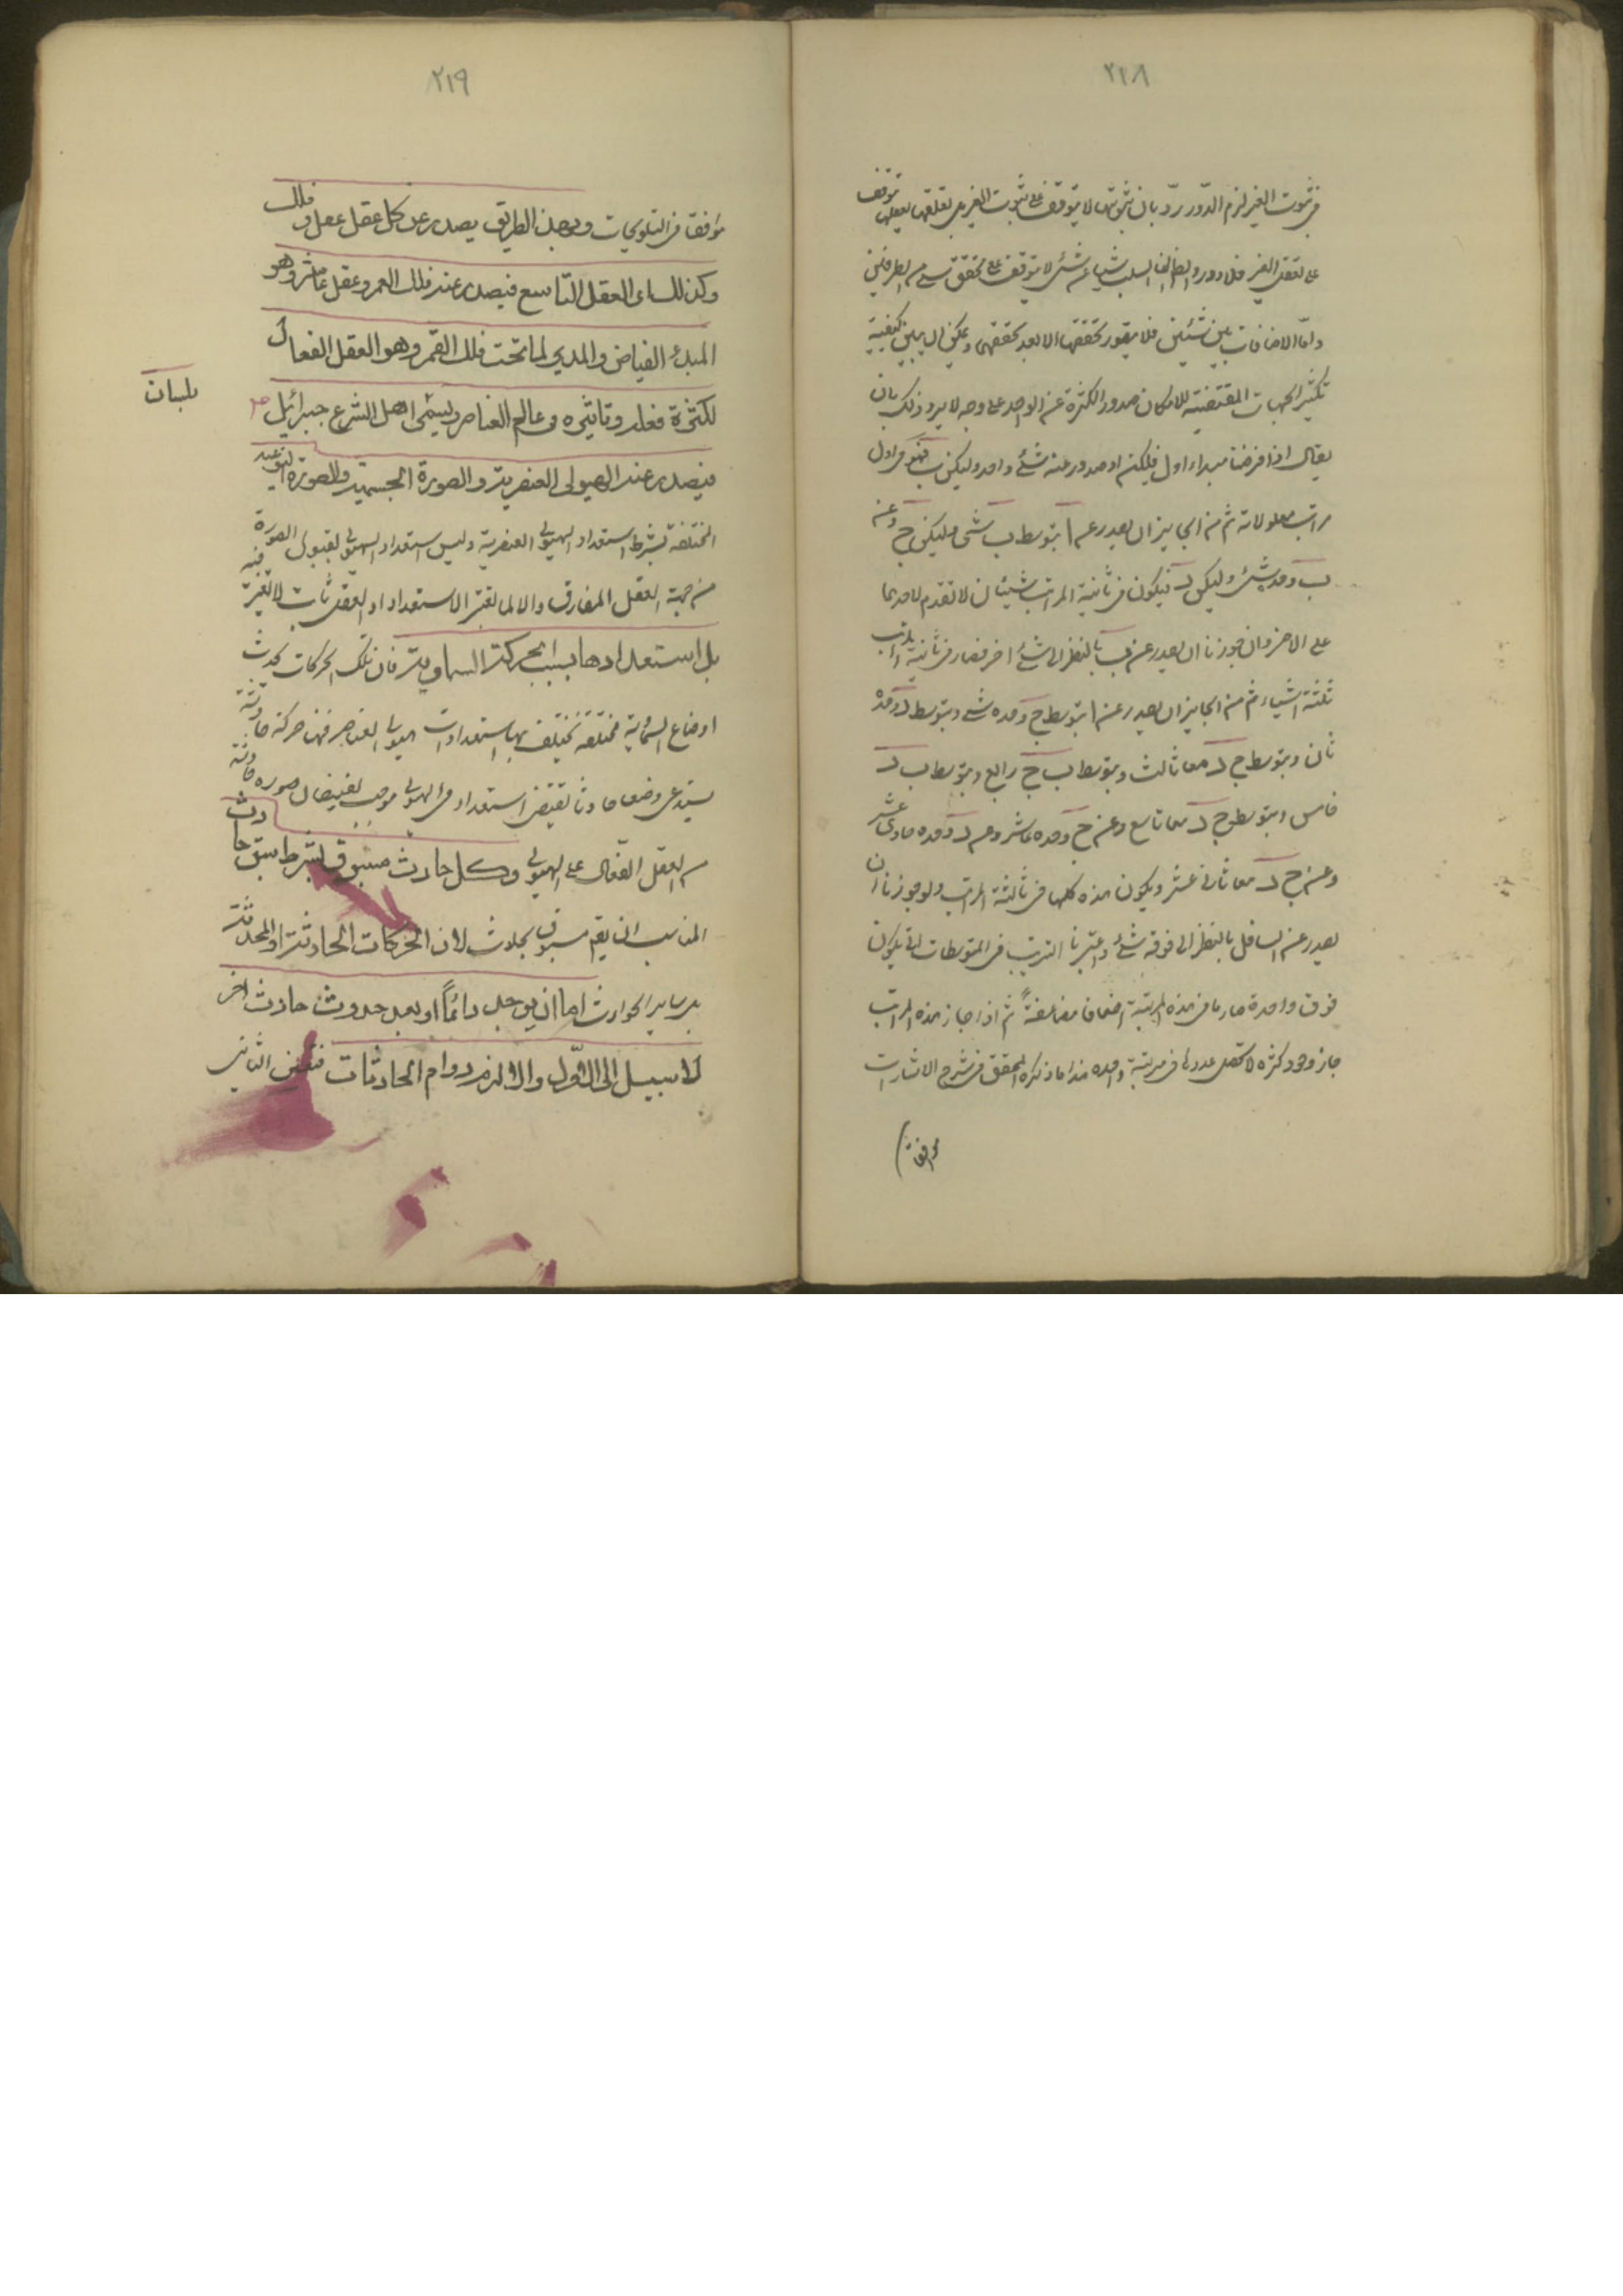 ٢١٨
في ثبوت الغير لزم الدور ردّ بان ثبوتها لا يتوقف على ثبوت الغير بل تعلقها يتوقف
على تعقل الغير فلا دور وايضا السلب شيئا عن شئ لا يتوقف على تحقق شئ من الطرفين
واما الاضافات بين شيئين فلا يتصور تحققها الا بعد تحققهما ويمكن ان يبين كيفية
تكثير الجهات المقتضية للامكان صدور الكثرة عن الواحد على وجه لا يرد وذلك بان
يقال اذا فرضنا مبداء اول وليكن ا وصدور عنه شئ واحد وليكن ب فهو في اول
مراتب معلولاته ثم من الجايز ان يصدر عن ا بتوسط ب شئ وليكن ج وعن
ب وحده شئ وليكن د فيكون في ثانية المراتب شيئان لا تقدم لاحدهما
على الاخر وان جوزنا ان يصدر عن ب بالنظر الى ا شئ اخر فصار في ثانية المراتب
ثلثة اشياء ثم من الجايز ان يصدر عن ا بتوسط ج وحده شئ وبتوسط د وحده
ثان وبتوسط ج د معا ثالث وبتوسط ب ج رابع وبتوسط ب د
خامس وبتوسط ج د معا تاسع وعن ج وحده عاشر وعن د وحده حادى عشر
وعن ج د معا ثانى عشر ويكون هذه كلها في ثالثة المراتب ولو جوزنا ان
يصدر عن السافل بالنظر الى فوقه شئ واعتبرنا الترتيب في المتوسطات التى يكون
فوق واحدة صار ما في هذه المرتبة اضعافا مضاعفة ثم اذا جاز هذه المراتب
جاز وجود كثرة لا تحصى عددها في مرتبة واحدة هذا ما ذكره المحقق في شرح الاشارات
موافقا
٢١٩
موافقا في التلويحات وبهذا الطريق يصدر عن كل عقل عقل وفلك
وكذلك الى العقل التاسع فيصدر عنه فلك القمر وعقل عاشر وهو
المبدئ الفياض والمدبر لما تحت فلك القمر وهو العقل الفعال
لكثرة فعله وتاثيره في عالم العناصر ويسمى اهل الشرع جبرائيل
بلسان
فيصدر عنه الهيولى العنصرية والصورة الجسمية والصورة النوعية
المختلفة بشرط استعداد الهيولى العنصرية وليس استعداد الهيولى لقبول الصورة
من جهة العقل المفارق والا لما تغير الاستعداد اذ العقل ثابت لا تغير فيه
بل استعدادها بسبب الحركة السماوية فان تلك الحركات تحدث
اوضاع السمائية مختلفة تختلف بها استعدادات هيولى العناصر فهذه حركة حادثة
يستدعى وضعا حادثا يقتضى استعداد في الهيولى موجب لفيضان صورة حادثة
من العقل الفعال على الهيولى وكل حادث مسبوق بشرط سبق حادث
المناسب ان يقم مسبوق بحادث لان الحركات الحادثة او المحدثة
بل ساير الحوادث اما ان يوجد دائماً او بعد حدوث حادث اخر
لا سبيل الى الاوّل والا لزم دوام الحادثات فتعين الثانى